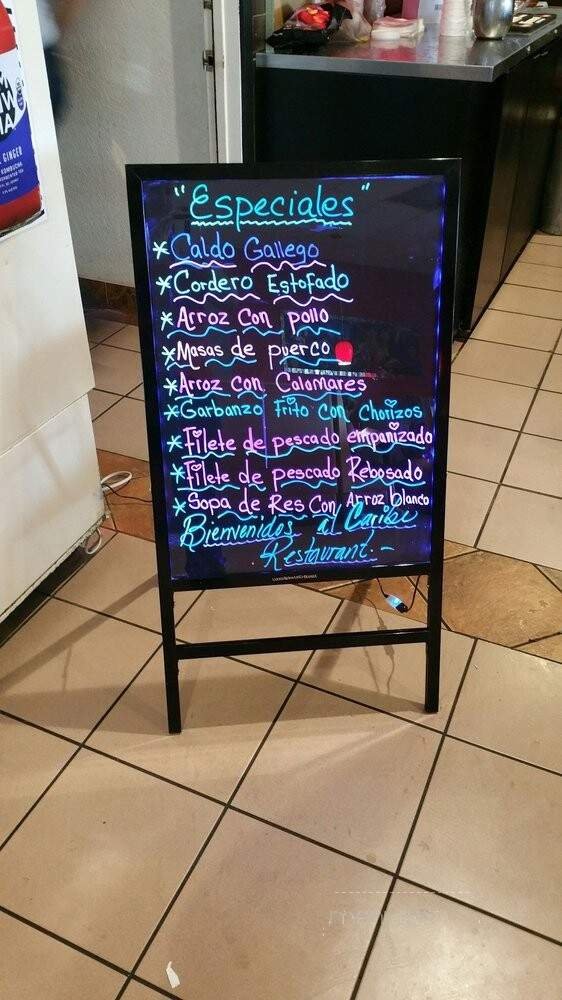 "Especiales"
* Caldo Gallego
* Cordero Estofado
* Arroz Con pollo
* Masas de puerco
* Arroz con Calamares
* Garbanzo Frito con Chorizos
* Filete de pescado empanizado
* Filete de pescado Rebosado
* Sopa de Res Con Arroz blanco
Bienvenidos al Caribe
Restaurant.-
GINGER
KOMBUCHA